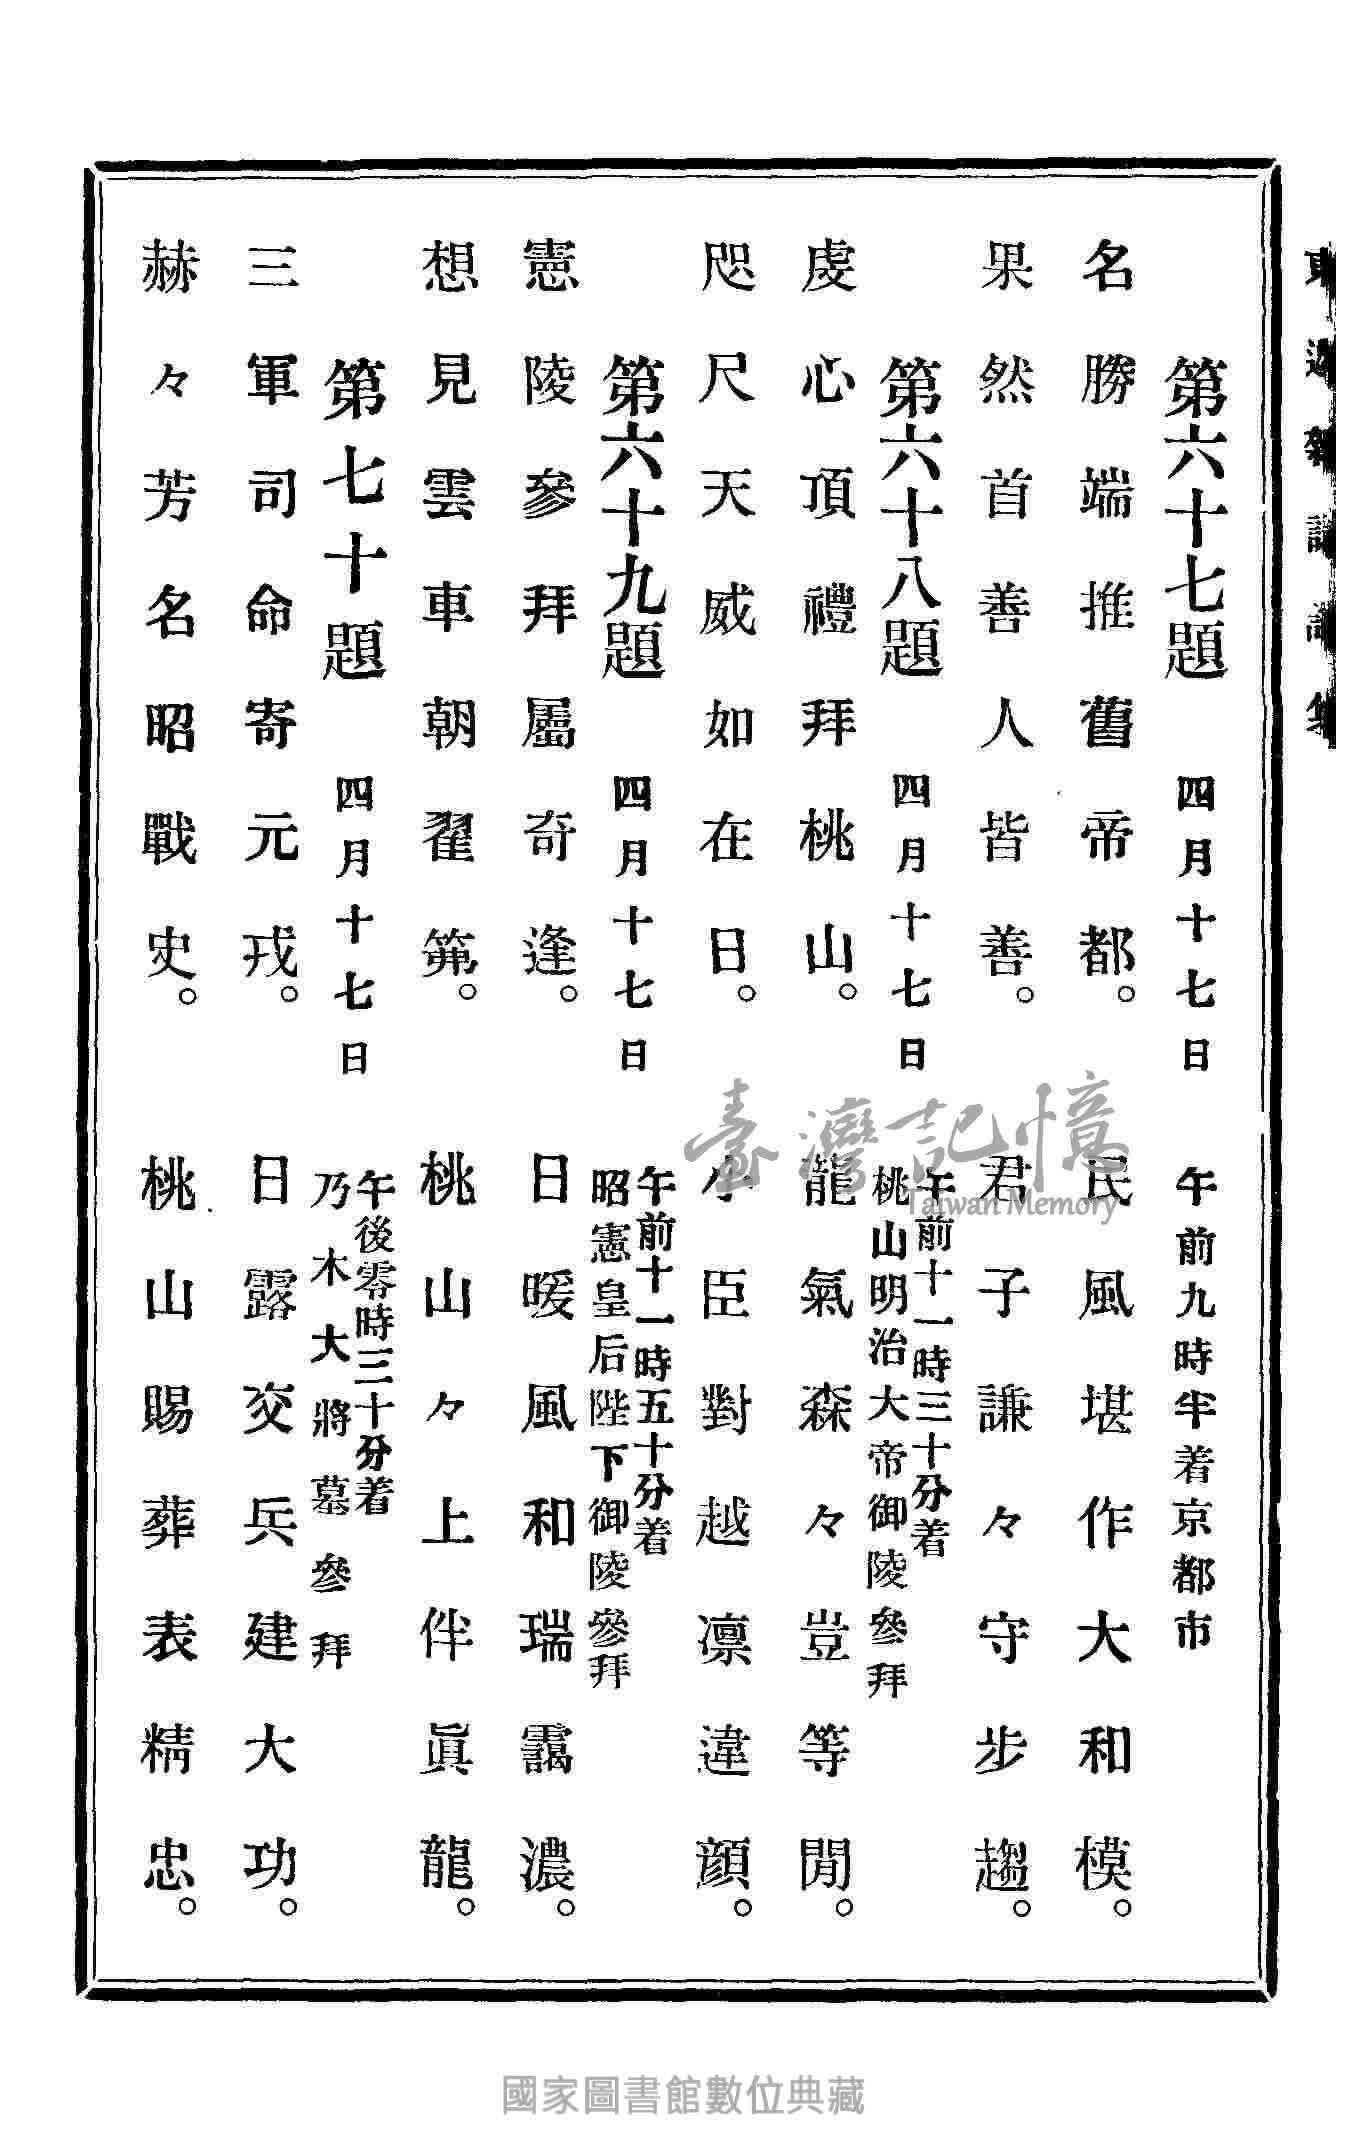 東遊雜詠詩集
第六十七題 四月十七日 午前九時半着京都市
名勝端推舊帝都。 民風堪作大和模。
果然首善人皆善。 君子謙々守步趨。
第六十八題 四月十七日 午前十一時三十分着
桃山明治大帝御陵參拜
虔心頂禮拜桃山。 龍氣森々豈等閒。
咫尺天威如在日。 小臣對越凛違顏。
第六十九題 四月十七日 午前十一時五十分着
昭憲皇后陛下御陵參拜
憲陵參拜屬奇逢。 日暖風和瑞靄濃。
想見雲車朝翟茀。 桃山々上伴眞龍。
第七十題 四月十七日 午後零時三十分着
乃木大將墓參拜
三軍司命寄元戎。 日露交兵建大功。
赫々芳名昭戰史。 桃山賜葬表精忠。
臺灣記憶
Taiwan Memory
國家圖書館數位典藏